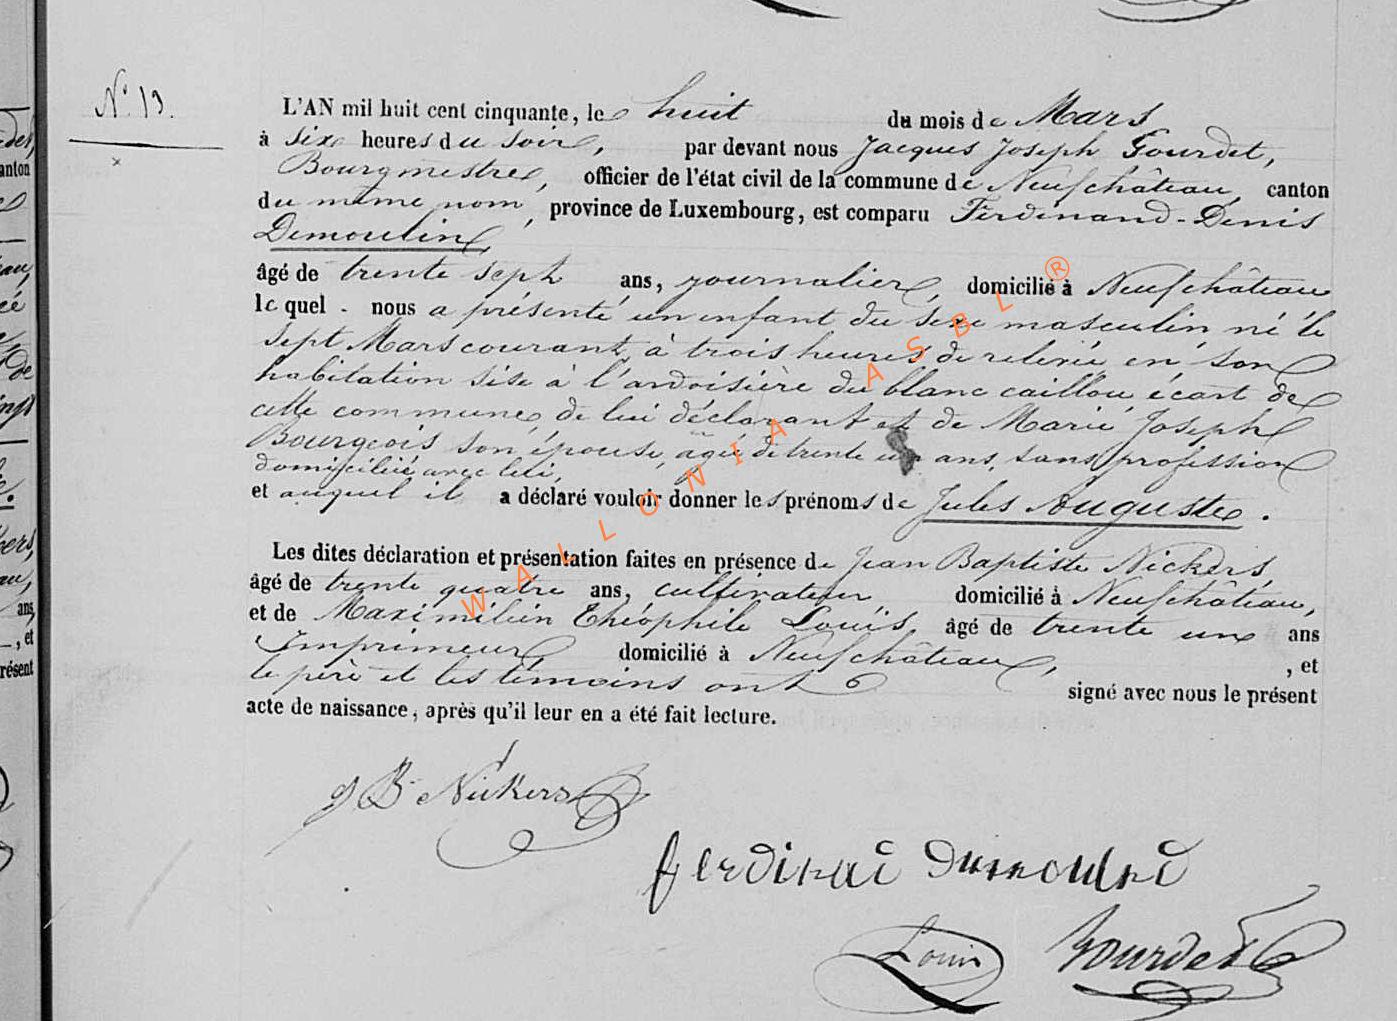 N° 13.
L'AN mil huit cent cinquante, le huit du mois de Mars
à six heures du soir, par devant nous Jacques Joseph Gourdet,
Bourgmestre, officier de l'état civil de la commune de Neufchâteau, canton
du même nom, province de Luxembourg, est comparu Ferdinand-Denis
Demoulin
âgé de trente sept ans, journalier, domicilié à Neufchâteau
lequel nous a présenté un enfant du sexe masculin né le
sept Mars courant, à trois heures de relevée en son
habitation sise à l'ardoisière du blanc caillou, écart de
cette commune, de lui déclarant et de Marie Joseph
Bourgeois son épouse, âgée de trente un ans, sans profession
domiciliée avec lui,
et auquel il a déclaré vouloir donner les prénoms de Jules Auguste.
Les dites déclaration et présentation faites en présence de Jean Baptiste Nickers,
âgé de trente quatre ans, cultivateur domicilié à Neufchâteau,
et de Maximilien Théophile Louis, âgé de trente un ans
Imprimeur domicilié à Neufchâteau, , et
le père et les témoins ont signé avec nous le présent
acte de naissance, après qu'il leur en a été fait lecture.
J B Nickers
ferdinai dumoulni
Louis Gourdet
WALLONIA ASBL ®